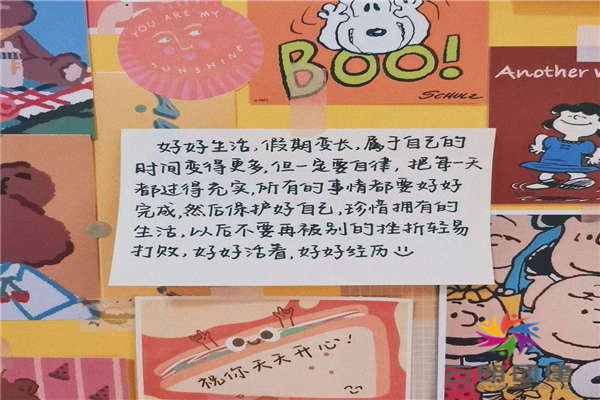 YOU ARE MY
SUNSHINE
BOO!
SCHULZ
Another
好好生活，假期变长，属于自己的
时间变得更多，但一定要自律，把每一天
都过得充实，所有的事情都要好好
完成，然后保护好自己，珍惜拥有的
生活，以后不要再被别的挫折轻易
打败，好好活着，好好经历
祝你天天开心！